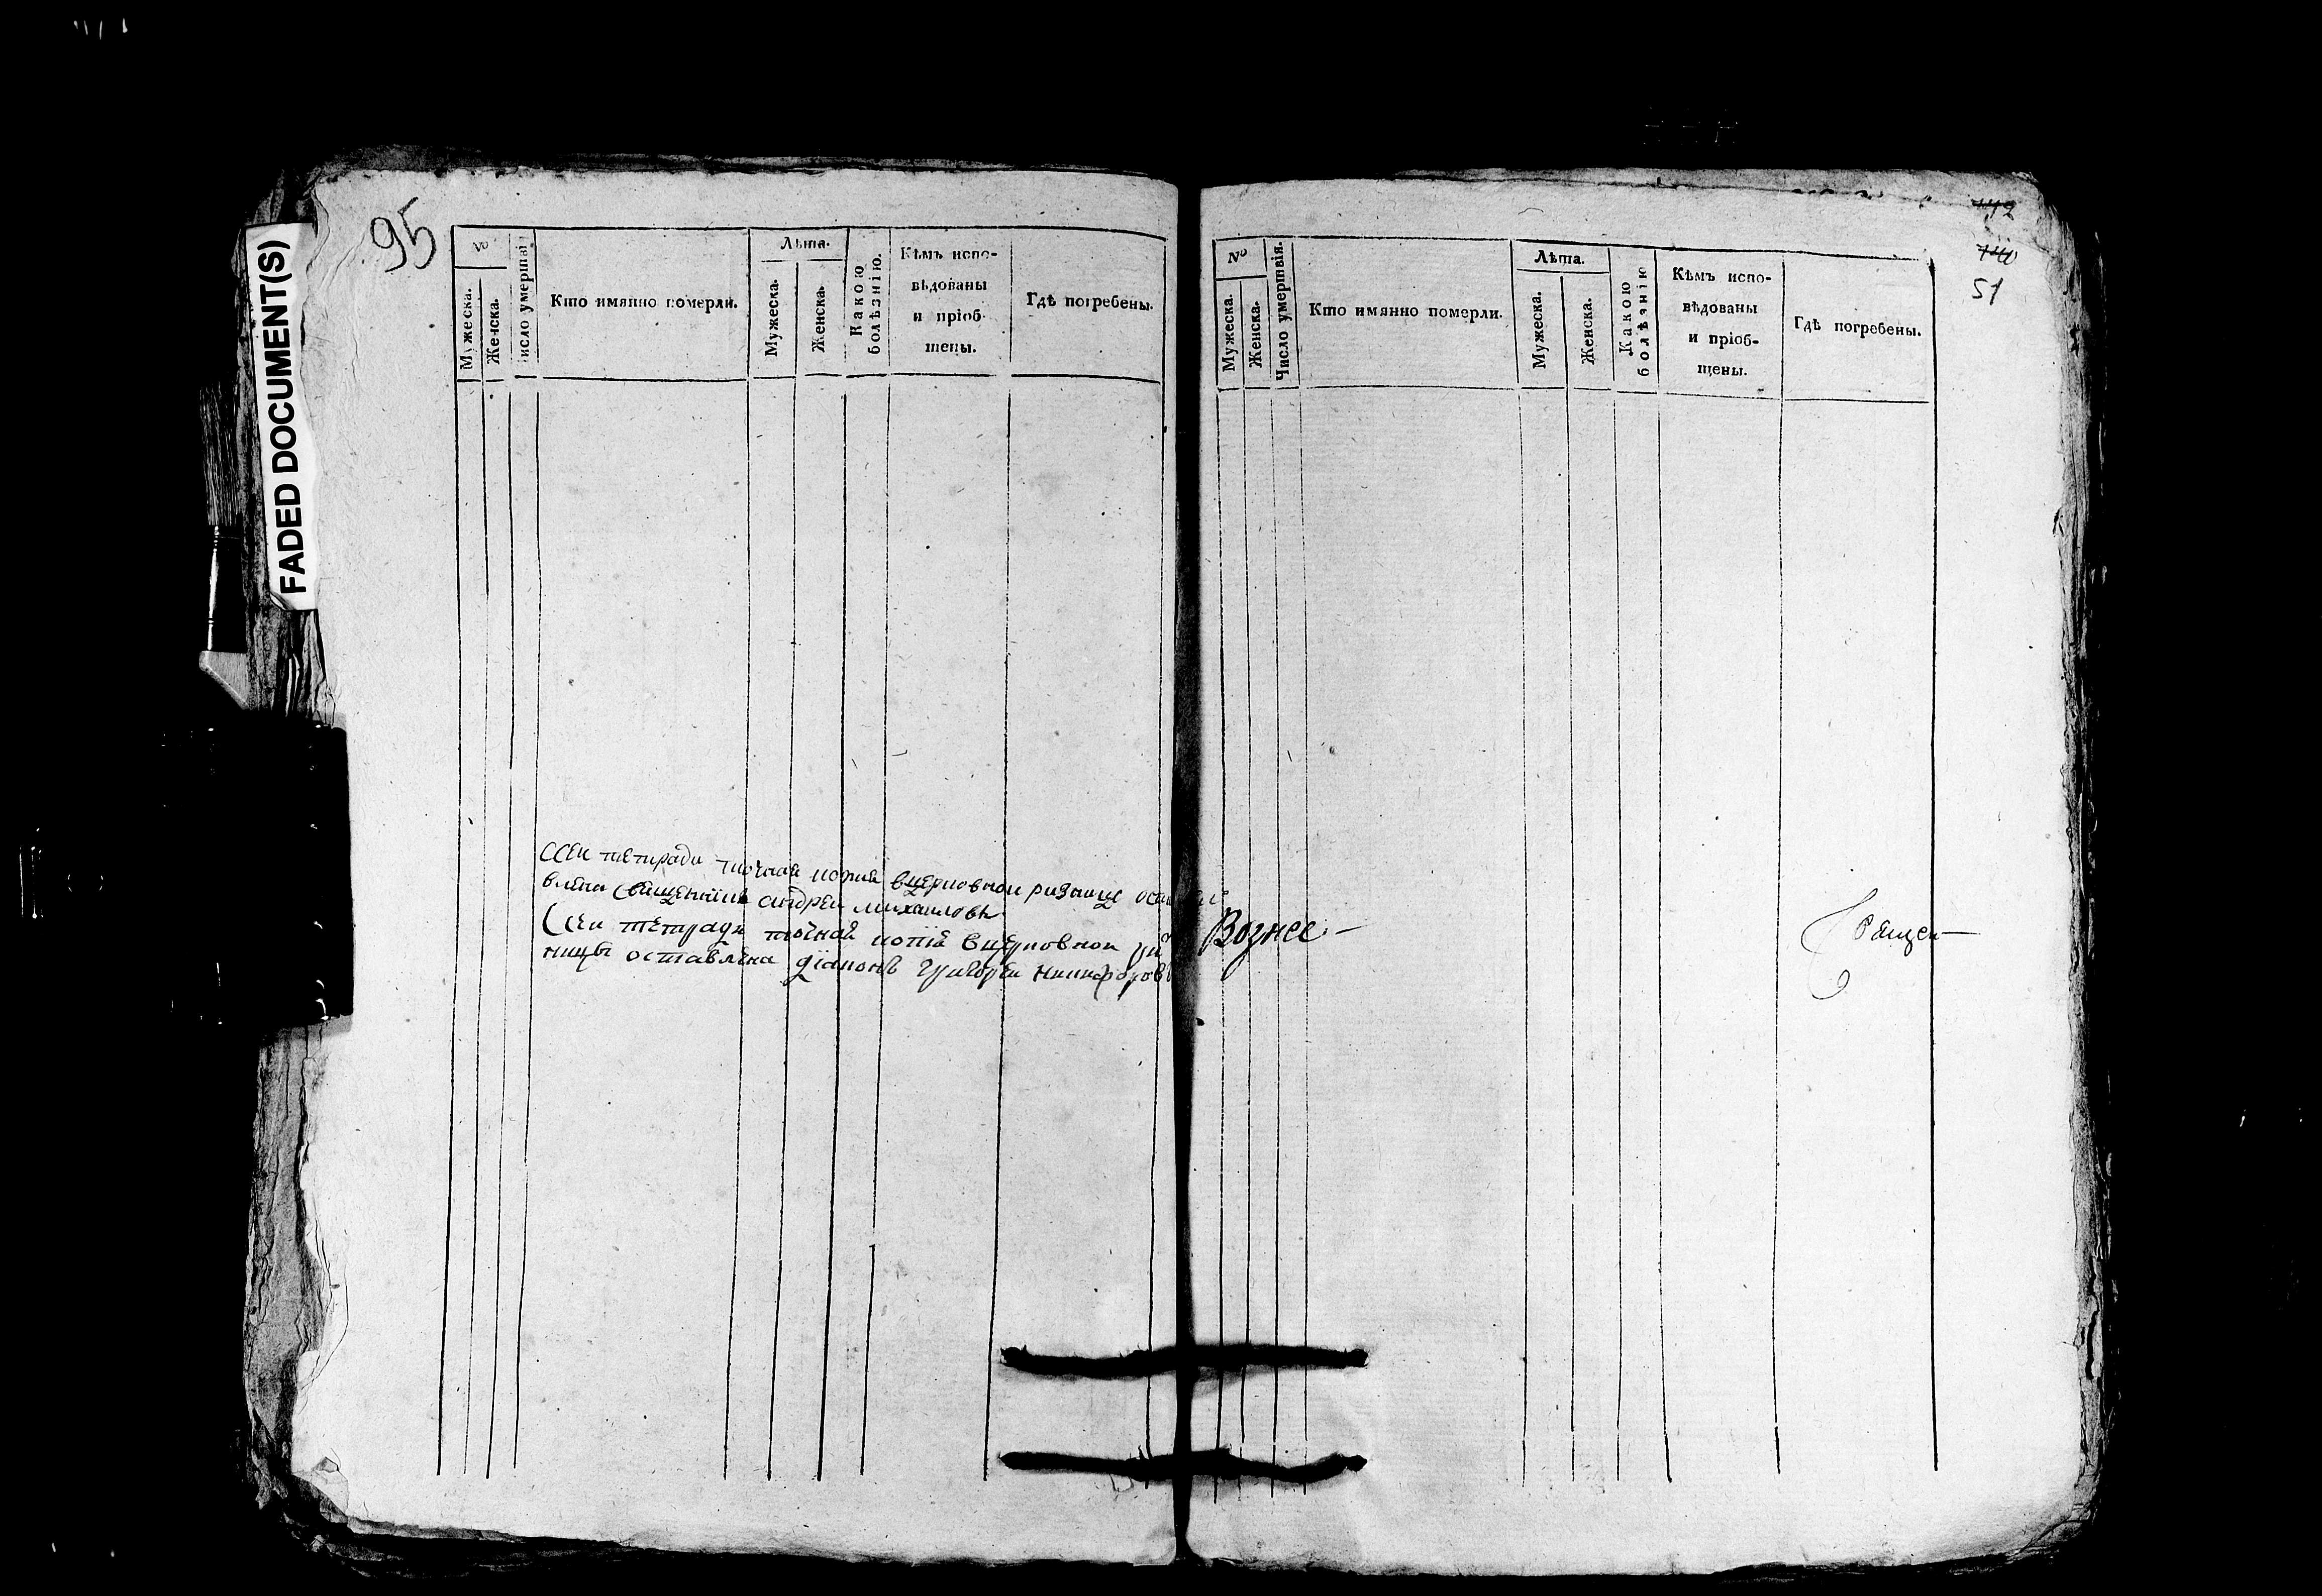 FADED DOCUMENT(S)
95
№
Мужеска.
Женска.
исло умертвї
Кто имянно померли.
Лѣта.
Мужеска.
Женска.
Какою
болѣзнію.
Кѣмъ испо-
вѣдованы
и пріоб-
щены.
Гдѣ погребены.
Ссеи тетради точная копия вцерковнои ризнице оста
влена Священникъ андреи михаиловъ
Ссеи тетради точная копїя вцерковнои ри
ницы оставлена дїаконъ григореи никифоровъ
112
140
51
№
Мужеска.
Женска.
Число умертвія.
Кто имянно померли.
Лѣта.
Мужеска.
Женска.
Какою
болѣзнію
Кѣмъ испо-
вѣдованы
и пріоб-
щены.
Гдѣ погребены.
Вознес-
Священ-